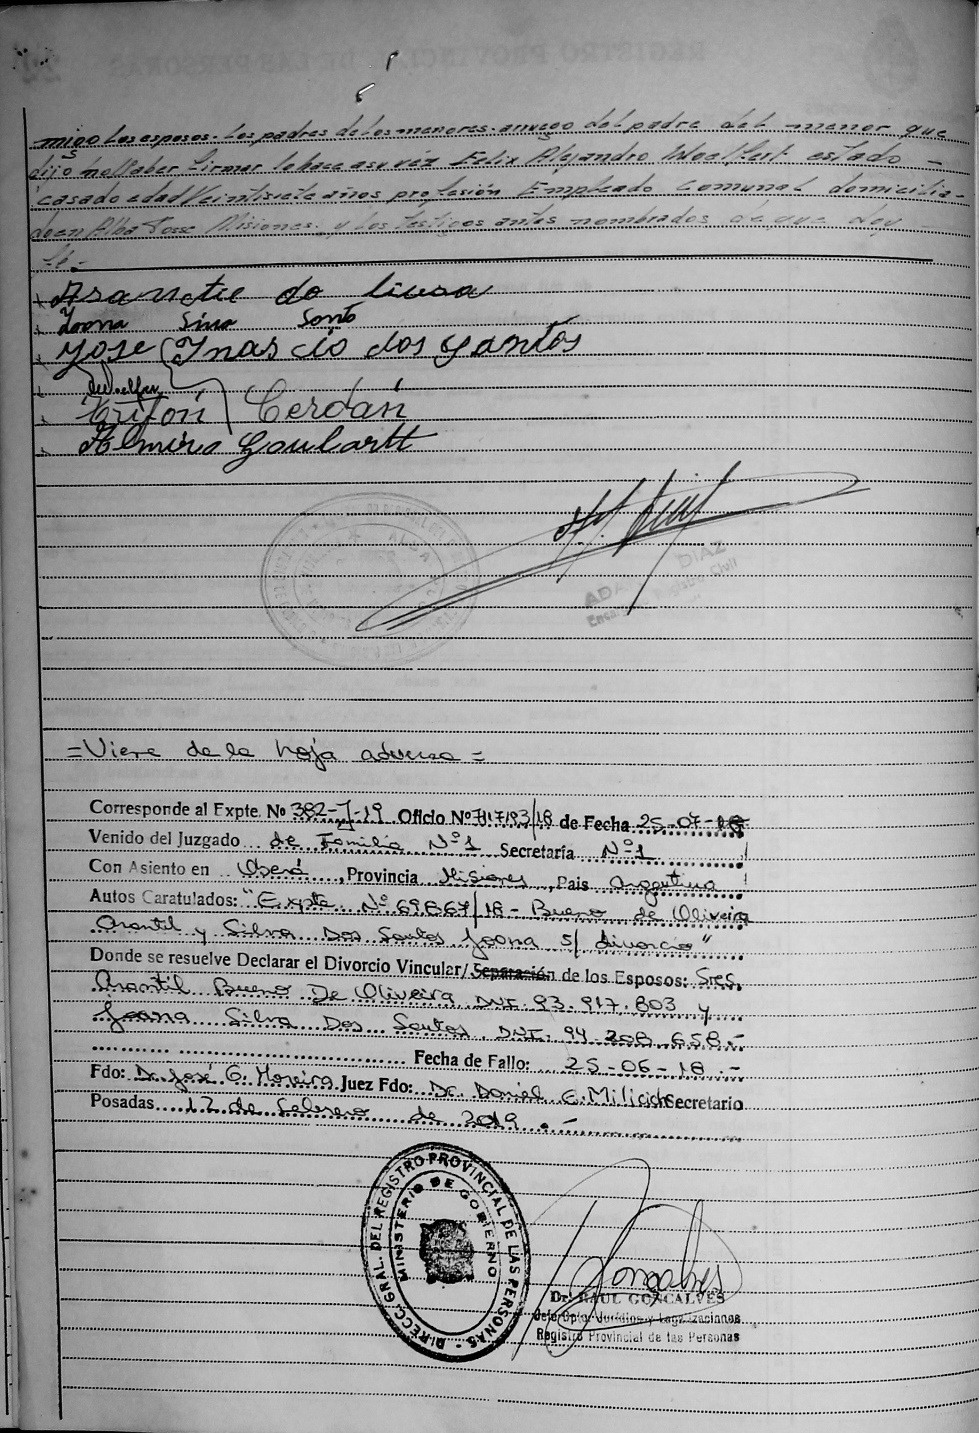 migo los esposos. Los padres de los menores. a ruego del padre del menor que
dijo no saber firmar lo hace a su véz Felix Alejandro Woelfert estado
casado edad Veintisiete años profesión Empleado Comunal domicilia-
do en Alba Posse Misiones. y los testigos antes nombrados de que doy
fé.-
Joana Silva Santo
José Inascio dos Santos
Trifón Cerdán
Almiro Goulartt
ALBA
ADA DIAZ
Registro Civil
=Viene de la hoja adversa=
Corresponde al Expte. No 382-J-19 Oficio Nº /18 de Fecha 25-07-18
Venido del Juzgado de Familia Nº1 Secretaría Nº1
Con Asiento en Oberá, Provincia Misiones, Pais Argentina
Autos Caratulados: "Expte Nº 69867/18 - Bueno de Oliveira
Arantil y Silva Dos Santos Joana S/ divorcio"
Donde se resuelve Declarar el Divorcio Vincular/Separación de los Esposos: Sres.
Arantil Bueno De Oliveira DNI. 93.917.803 y
Joana Silva Dos Santos DNI. 94.208.658.-
Fecha de Fallo: 25-06-18.-
Fdo: Dr. José G. Moreira Juez Fdo: Dr. Daniel E. Milicich Secretario
Posadas 12 de febrero de 2019.-
DIRECC. GRAL. DEL REGISTRO PROVINCIAL DE LAS PERSONAS
MINISTERIO DE GOBIERNO
Gonçalves
Dr. RAUL GONCALVES
Jefe Dpto. Jurídico y Legalizaciones
Registro Provincial de las Personas